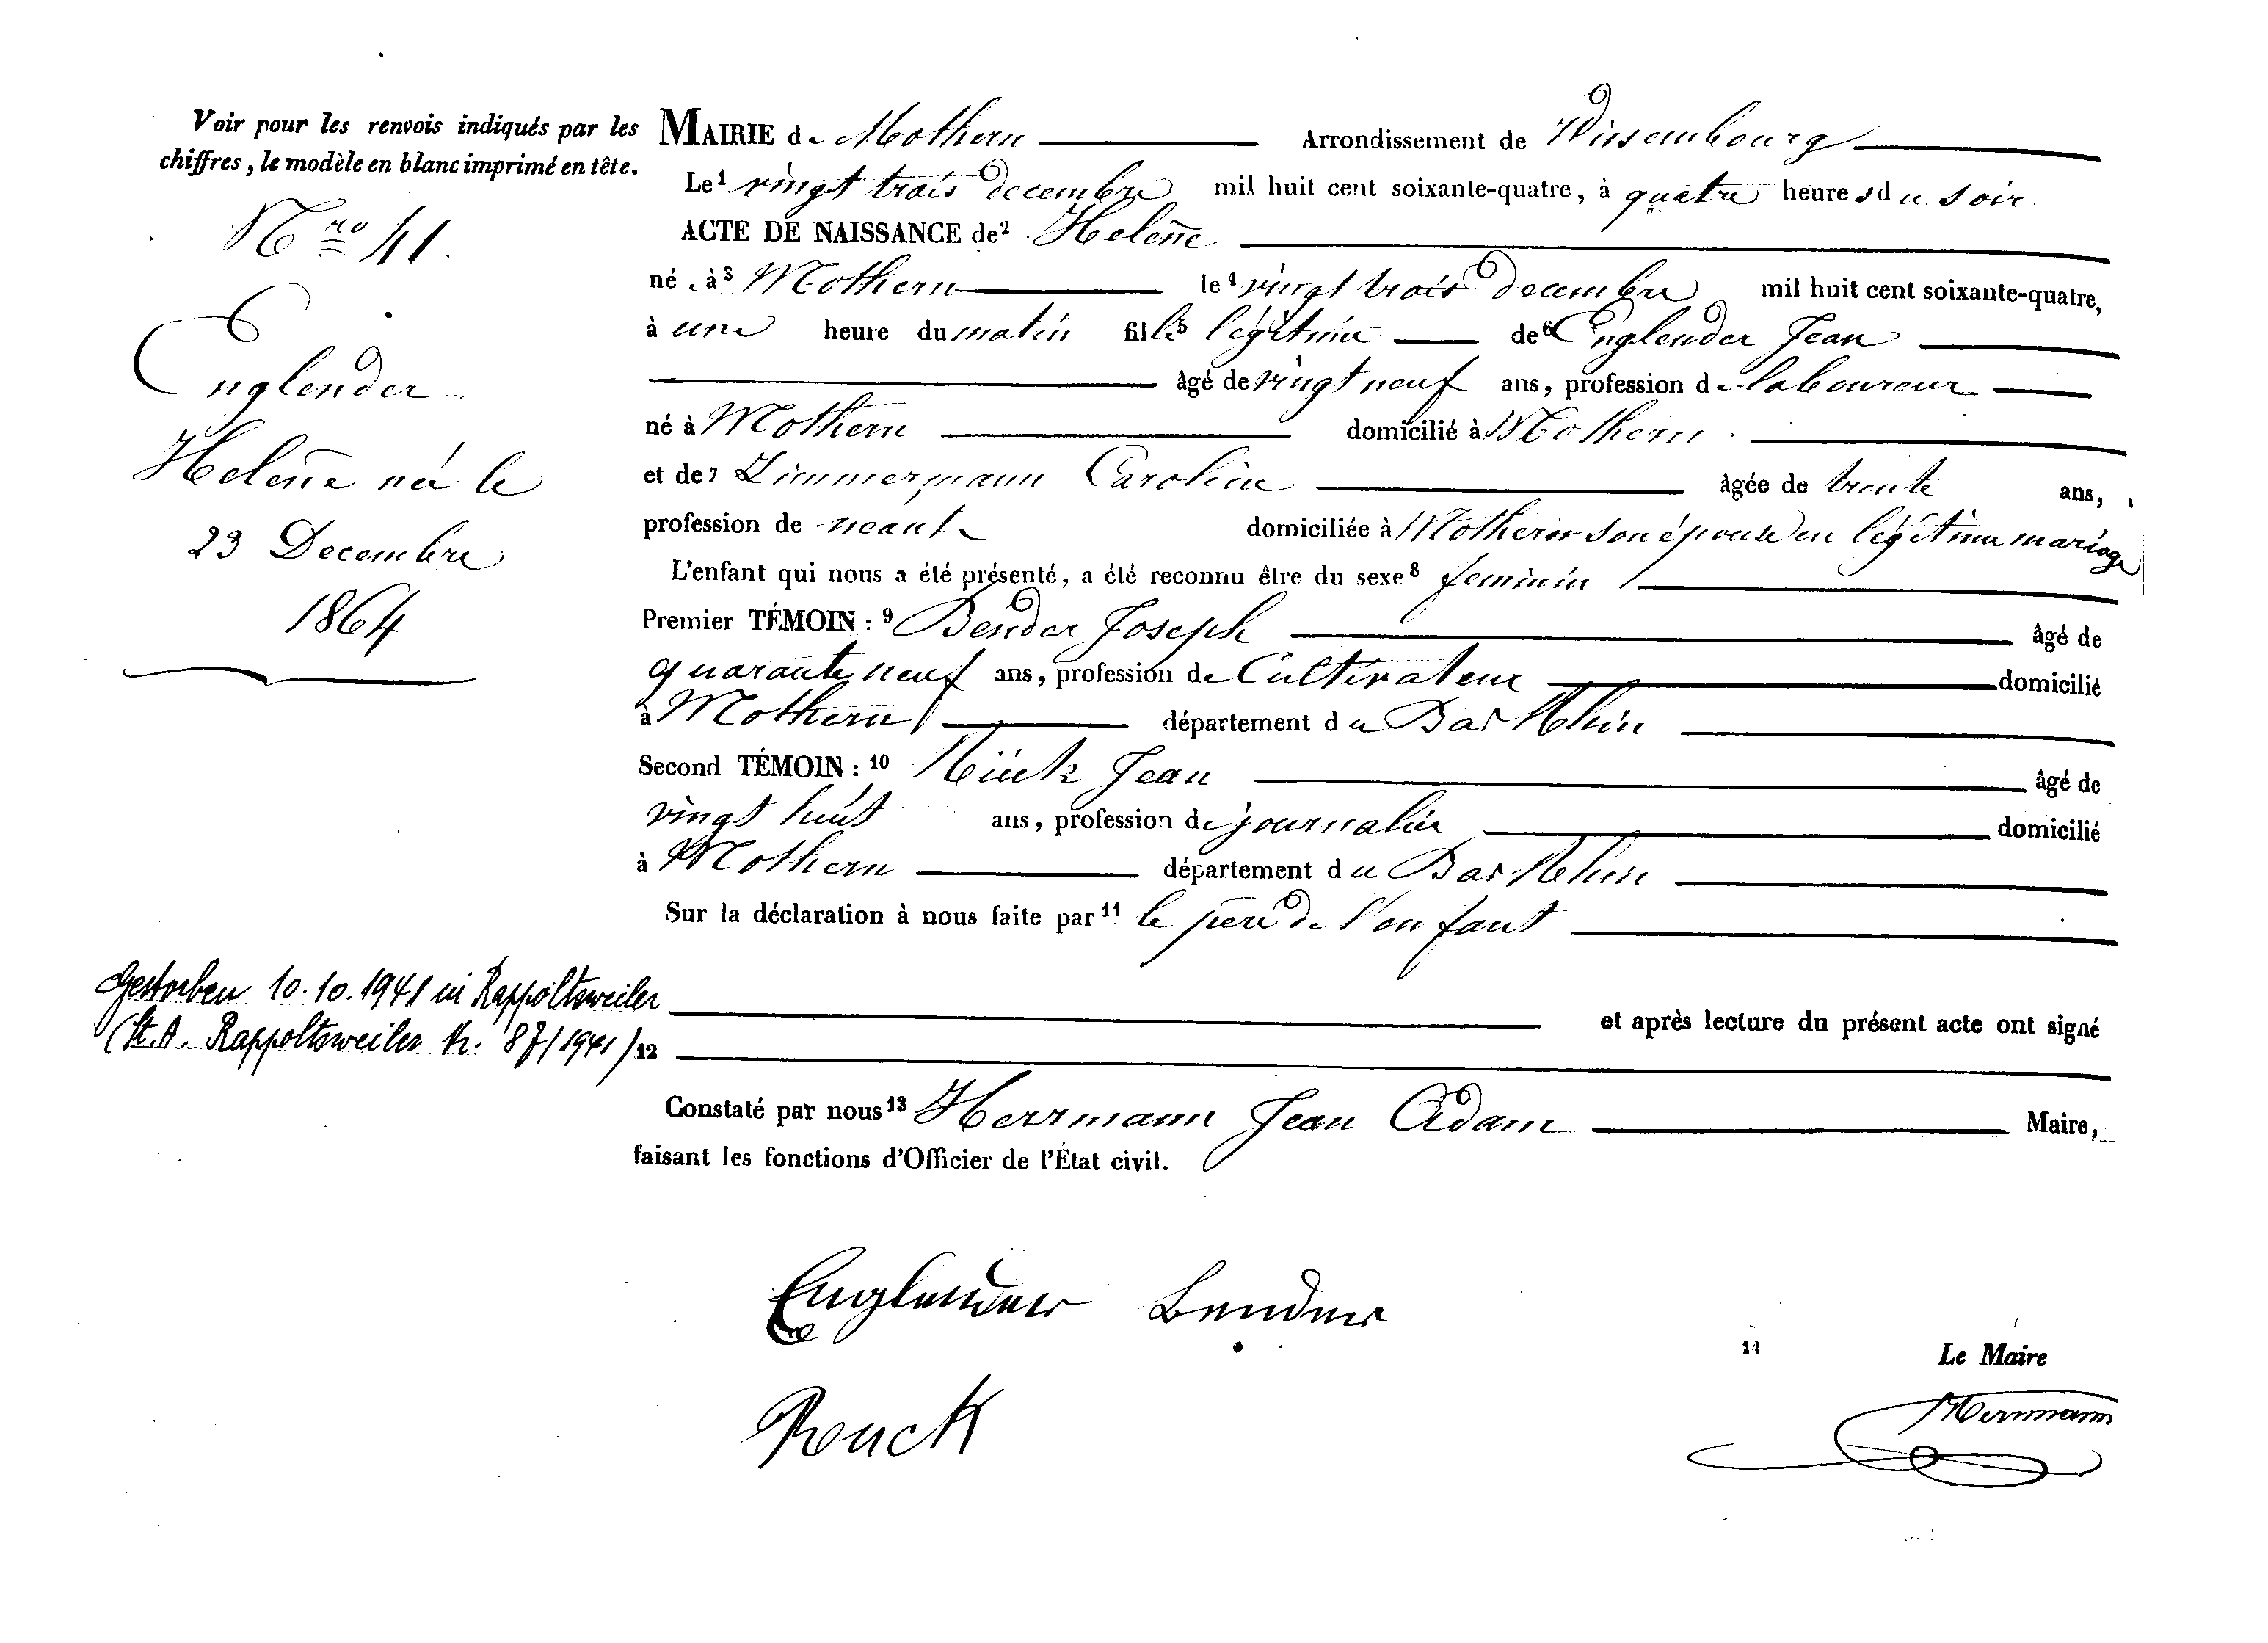 Voir pour les renvois indiqués par les
chiffres, le modèle en blanc imprimé en tête.
Nro 41.
Englender
Helene né le
23 Decembre
1864
MAIRIE de Mothern Arrondissement de Wissembourg
Le 1 vingt trois decembre mil huit cent soixante-quatre, à quatre heures du soir.
ACTE DE NAISSANCE de 2 Helene
né à 3 Mothern le 4 vingt trois decembre mil huit cent soixante-quatre,
à une heure du matin fille 5 légitime de 6 Englender Jean
âgé de vingt neuf ans, profession de laboureur
né à Mothern domicilié à Mothern
et de 7 Zimmermann Caroline âgée de trente ans,
profession de néant domiciliée à Mothern son épouse en légitime mariage
L'enfant qui nous a été présenté, a été reconnu être du sexe 8 feminin
Premier TÉMOIN : 9 Bender Joseph âgé de
quarante neuf ans, profession de Cultivateur domicilié
à Mothern département du Bas Rhin
Second TÉMOIN : 10 Jean âgé de
vingt huit ans, profession de journalier domicilié
à Mothern département du Bas Rhin
Sur la déclaration à nous faite par 11 le père de l'enfant
Gestorben 10.10.1941 in Rappoltsweiler
et après lecture du présent acte ont signé
(St.A. Rappoltsweiler Nr. 87/1941) 12
Constaté par nous 13 Herrmann Jean Adam Maire,
faisant les fonctions d'Officier de l'État civil.
Englender Bender
14 Le Maire
Rouck
Herrmann